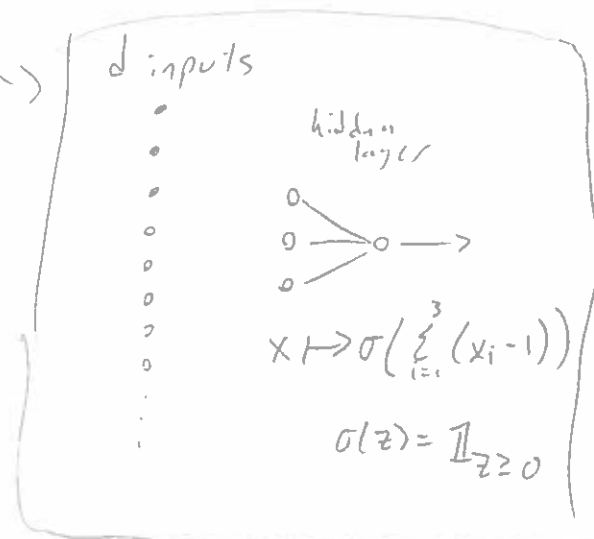 d inputs
hidden
layer
x ↦ σ(∑_{i=1}^{3} (x_i - 1))
σ(z) = 𝟙_{z≥0}